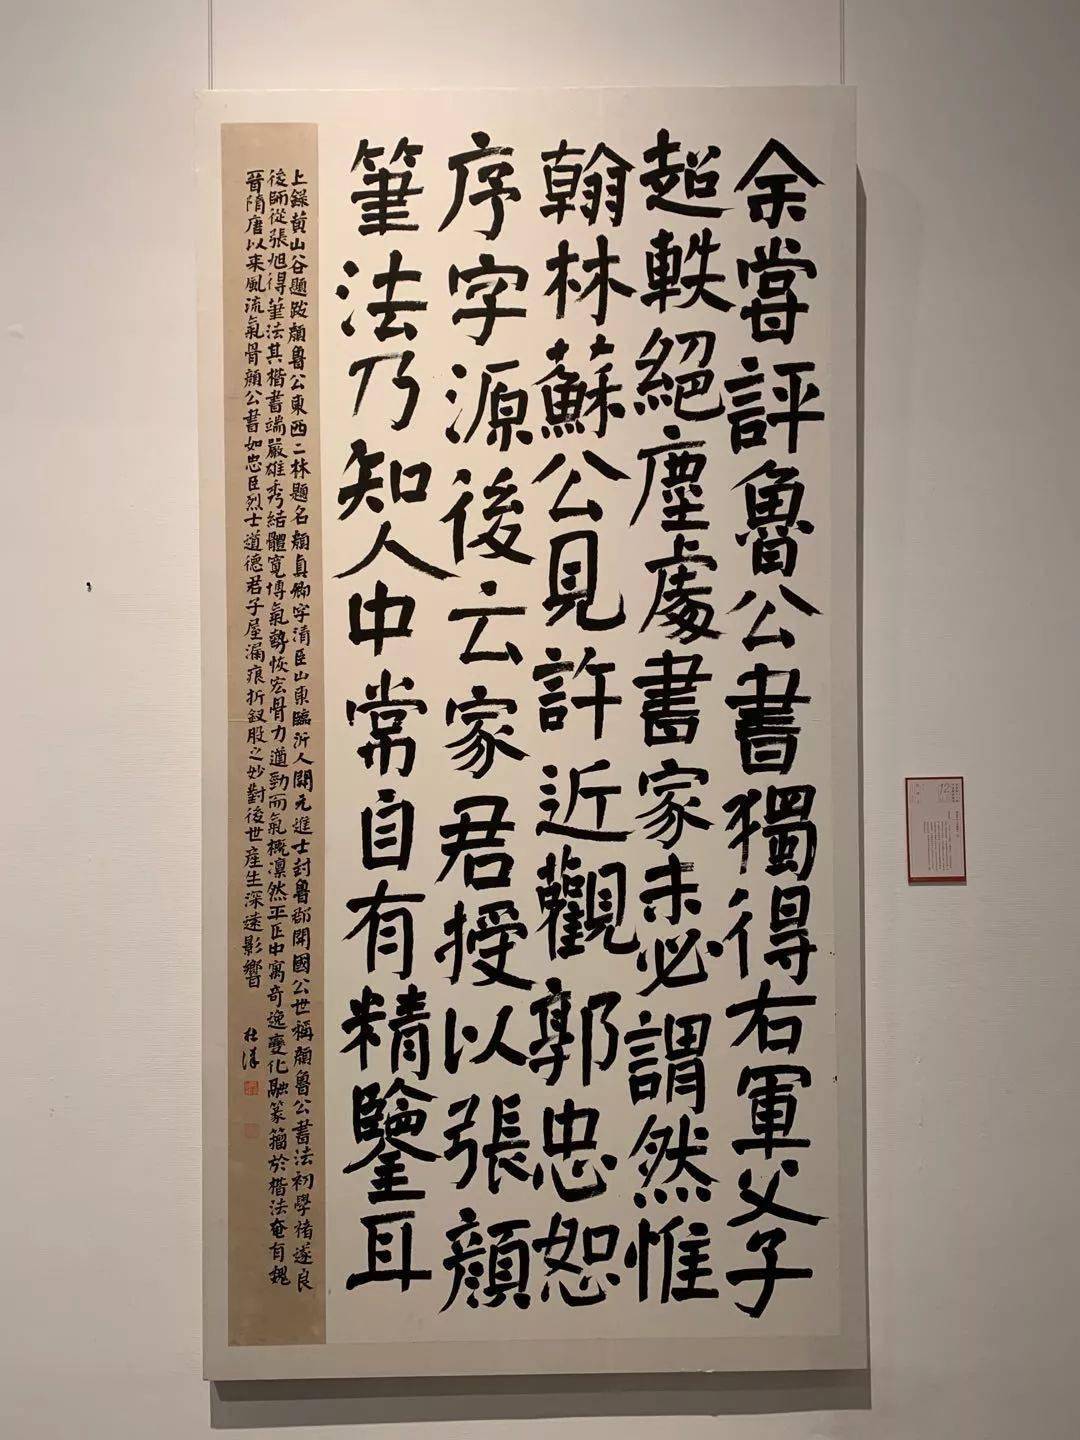 余嘗評魯公書獨得右軍父子
超軼絕塵處書家未必謂然惟
翰林蘇公見許近觀郭忠恕
序字源後云家君授以張顏
筆法乃知人中常自有精鑒耳
上錄黃山谷題跋顏魯公東西二林題名顏真卿字清臣山東臨沂人開元進士封魯郡開國公世稱顏魯公書法初學褚遂良
後師從張旭得筆法其楷書端嚴雄秀結體寬博氣勢恢宏骨力遒勁而氣概凜然平正中寓奇逸變化融篆籀於楷法奄有魏
晉隋唐以来風流氣骨顏公書如忠臣烈士道德君子屋漏痕折釵股之妙對後世產生深遠影響
12